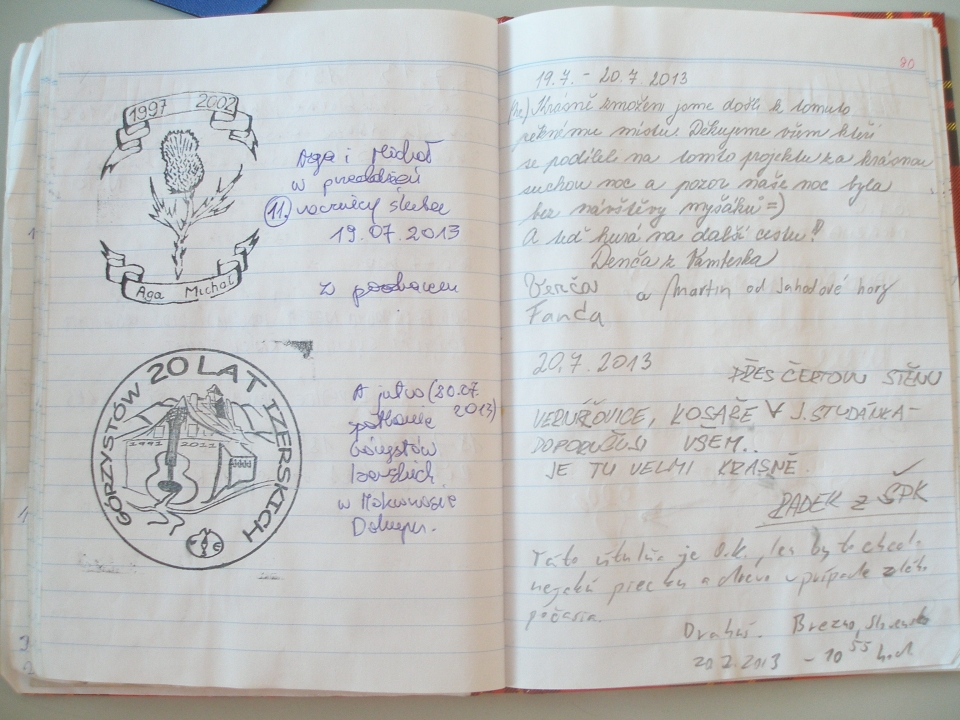 1997 2002
Aga Michał
Aga i Michał
w przeddzień
11. rocznicy ślubu
19.07.2013
Z pozdrowieniem
20 LAT GÓRZYSTÓW IZERSKICH
1991 2011
A jutro (20.07.
2013)
spotkanie
Górzystów
Izerskich
w
Dolnym.
90
19.7. - 20.7.2013
Krásně zmoženi jsme došli k tomuto
pěknému místu. Děkujeme vám kteří
se podíleli na tomto projektu za krásnou
suchou noc a pozor naše noc byla
bez návštěvy myšáků =)
A teď hurá na další cestu!
Denča z Vamberka
Verča a Martin od Jahodové hory
Fanča
20.7.2013
PŘES ČERTOVU STĚNU
KOSAŘE J. STUDÁNKA -
DOPORUČUJI VŠEM..
JE TU VELMI KRÁSNĚ.
RADEK z ŠPK
Táto útulňa je O.K., len by to chcelo
nejakú piecku a drevo v prípade zlého
počasia.
Drahuš. Brezno, Slovensko
20.7.2013 - 10 55 hod